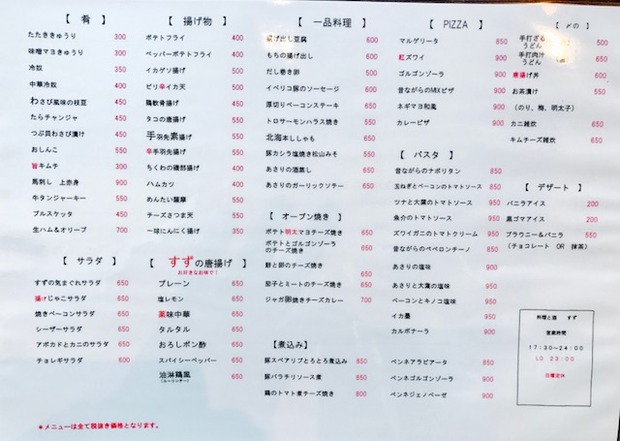 【 肴 】
たたききゅうり 300
味噌マヨきゅうり 300
冷奴 350
中華冷奴 400
わさび風味の枝豆 450
たらチャンジャ 450
つぶ貝わさび漬け 450
おしんこ 550
旨キムチ 300
馬刺し 上赤身 900
牛タンジャーキー 550
ブルスケッタ 450
生ハム&オリーブ 700
【 サラダ 】
すずの気まぐれサラダ 650
揚げじゃこサラダ 650
焼きベーコンサラダ 650
シーザーサラダ 650
アボカドとカニのサラダ 650
チョレギサラダ 600
【 揚げ物 】
ポテトフライ 400
ペッパーポテトフライ 400
イカゲソ揚げ 500
ピリ辛イカ天 500
鶏軟骨揚げ 550
タコの唐揚げ 550
手羽先素揚げ 550
辛手羽先揚げ 550
ちくわの磯部揚げ 400
ハムカツ 400
めんたい薩摩 550
チーズさつま天 550
~球にんにく揚げ 350
【 すずの唐揚げ 】
お好きなお味で!
プレーン 650
塩レモン 650
薬味中華 650
タルタル 650
おろしポン酢 650
スパイシーペッパー 650
油淋鶏風 650
(ユーリンチー)
【 一品料理 】
揚げ出し豆腐 600
もちの揚げ出し 600
だし巻き卵 500
イベリコ豚のソーセージ 600
厚切りベーコンステーキ 650
トロサーモンハラス焼き 550
北海本ししゃも 650
豚カシラ塩焼き松山みそ 550
あさりの酒蒸し 650
あさりのガーリックソテー 650
【 オーブン焼き 】
ポテト明太マヨチーズ焼き 650
ポテトとゴルゴンゾーラ
のチーズ焼き 650
餅と卵のチーズ焼き 650
茄子とミートのチーズ焼き 650
ジャガ卵焼きチーズカレー 700
【煮込み】
豚スペアリブとろとろ煮込み 850
豚バラチリソース煮 850
鶏のトマト煮チーズ焼き 900
【 PIZZA 】
マルゲリータ 850
紅ズワイ 900
ゴルゴンゾーラ 900
昔ながらのMIXピザ 900
ネギマヨ和風 900
カレーピザ 900
【 パスタ 】
昔ながらのナポリタン 850
玉ねぎとベーコンのトマトソース 850
ツナと大葉のトマトソース 950
魚介のトマトソース 950
ズワイガニのトマトクリーム 950
昔ながらのペペロンチーノ 850
あさりの塩味 900
あさりと大葉の塩味 950
ベーコンとキノコ塩味 950
イカ墨 950
カルボナーラ 900
ペンネアラビアータ 850
ペンネゴルゴンゾーラ 900
ペンネジェノベーゼ 900
【 〆の 】
手打ざる
うどん 500
手打肉汁
うどん 650
唐揚げ丼 600
お茶漬け 550
(のり、梅、明太子)
カニ雑炊 650
キムチーズ雑炊 650
【 デザート 】
バニラアイス 200
黒ゴマアイス 200
ブラウニー&バニラ 500
(チョコレート OR 抹茶)
料理と酒 すず
営業時間
17:30~24:00
LO 23:00
日曜定休
*メニューは全て税抜き価格となります。